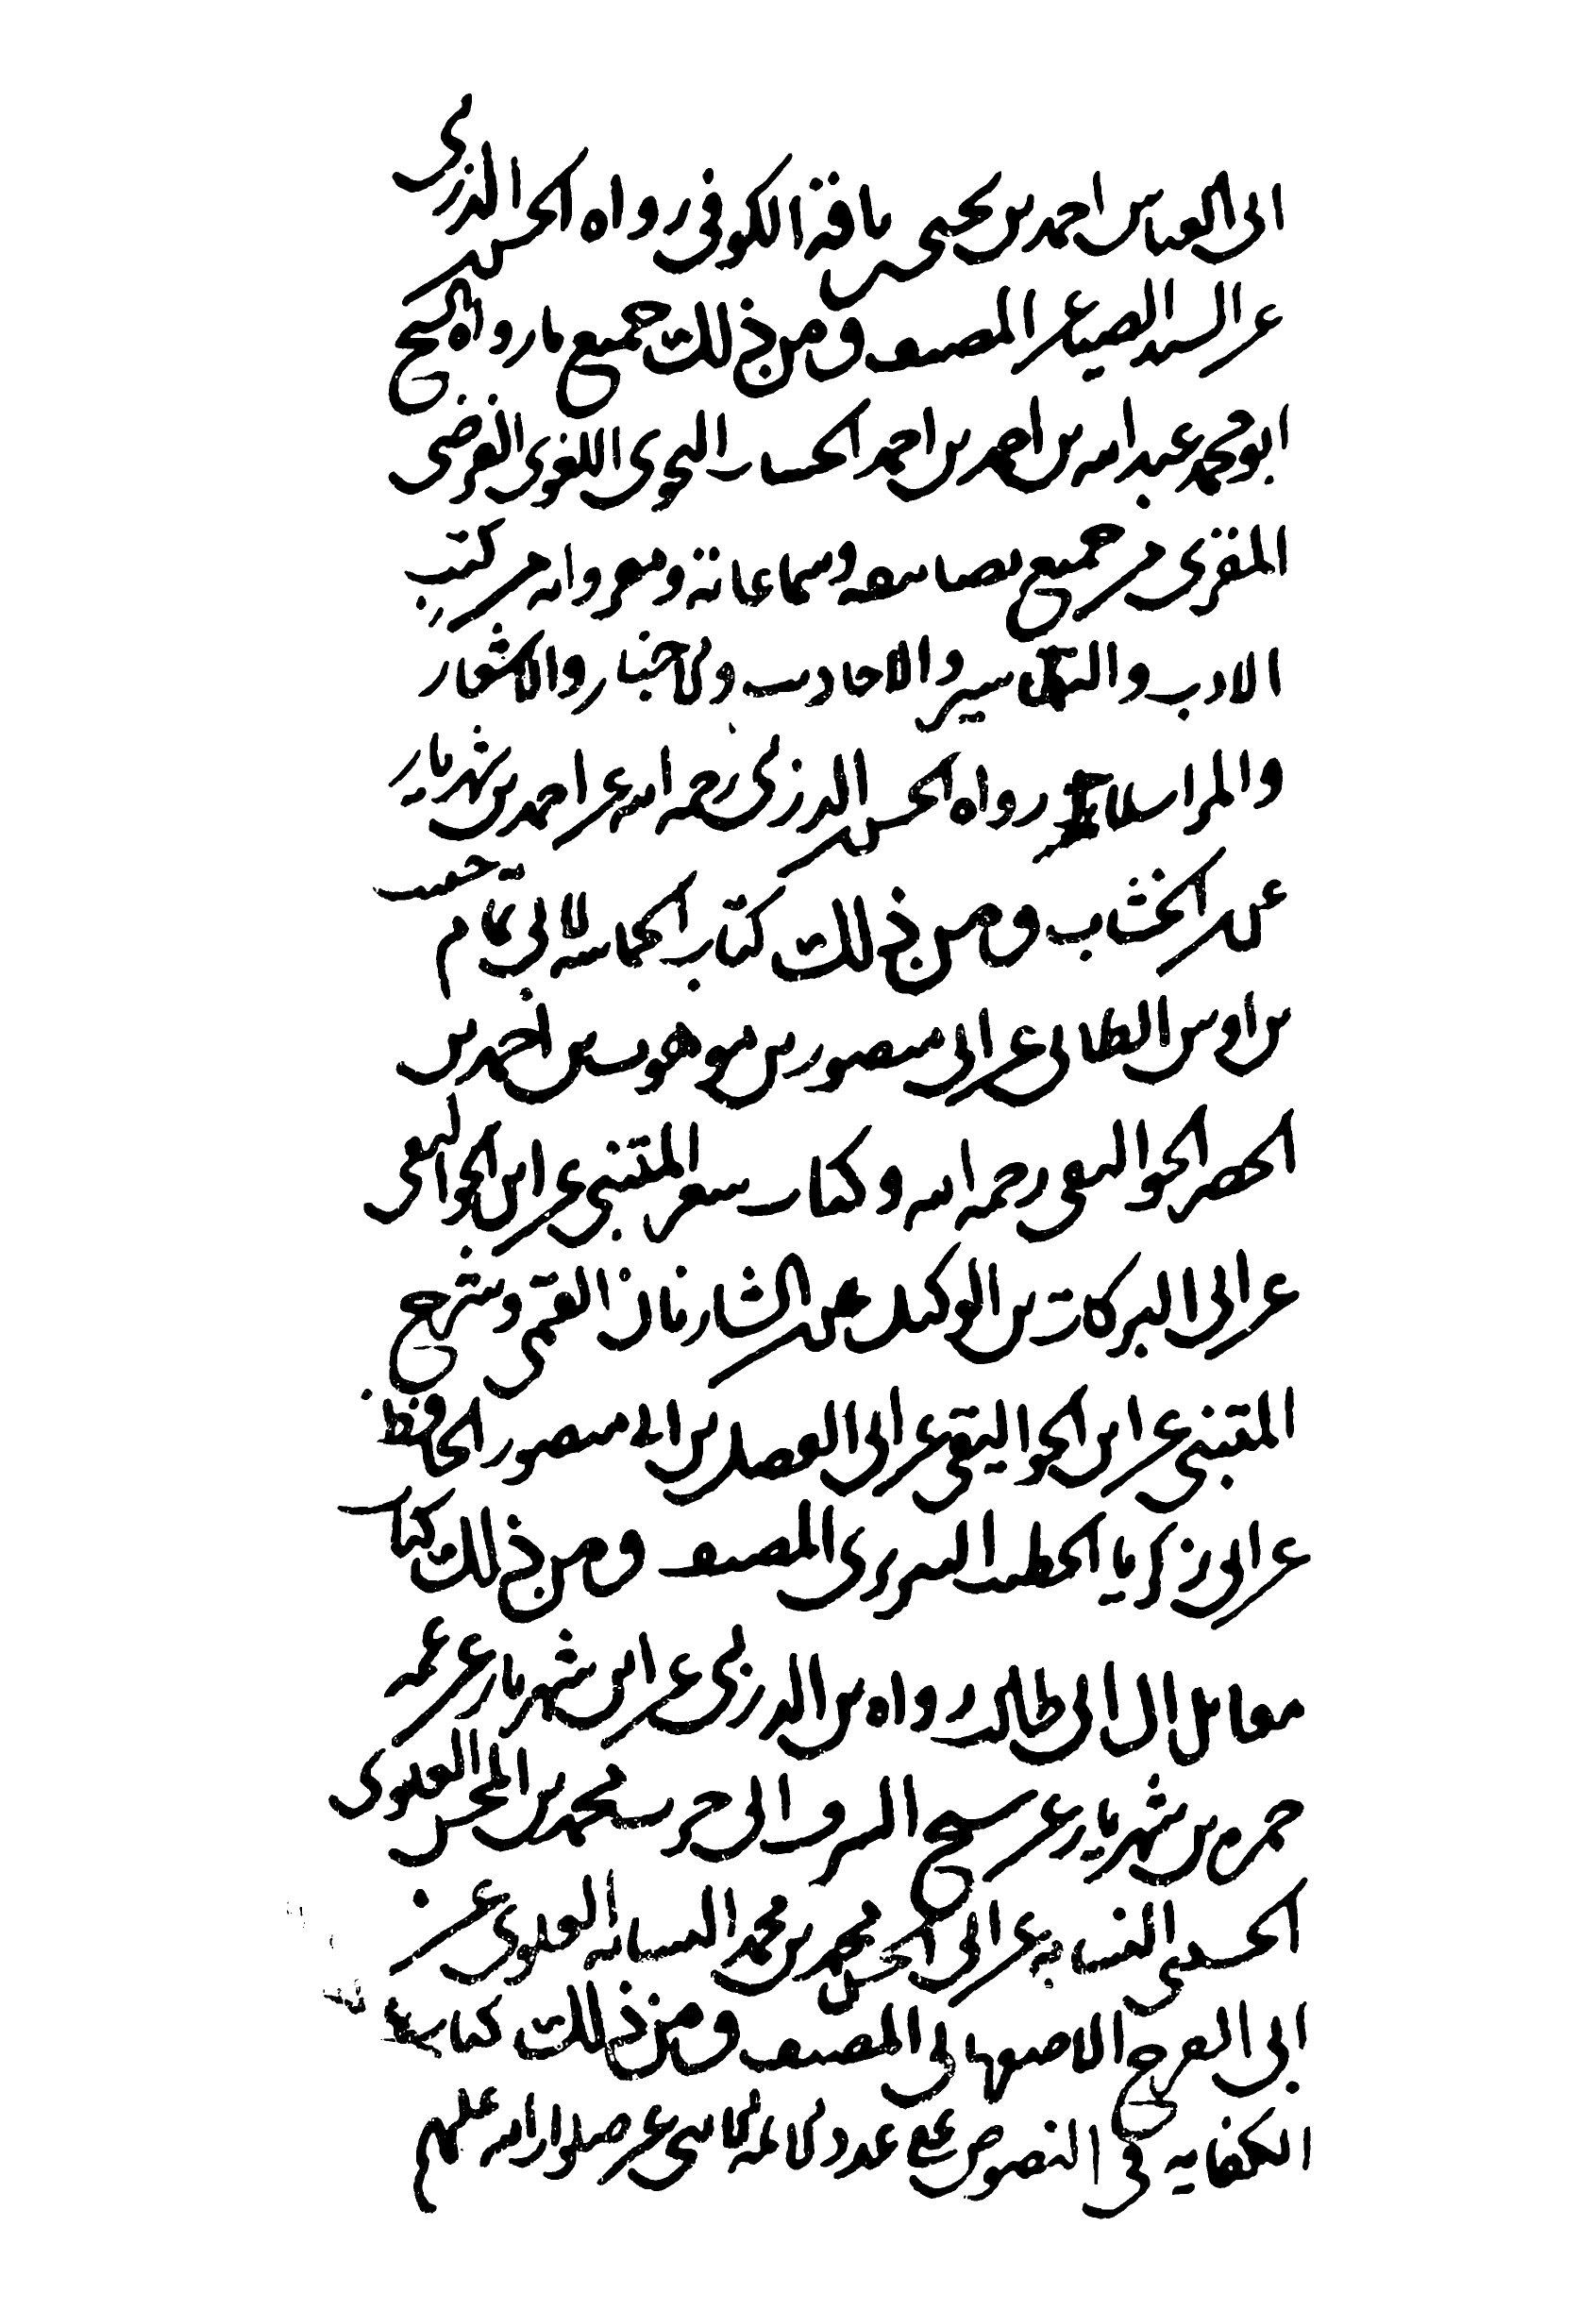 ابى العباس احمد بن يحيى بن ناقة الكوفي رواه الحسن الدربي
عن السيد الضيا عن المصنف ومن ذلك جميع ما رواه الشيخ
ابو محمد عبد الله بن احمد بن احمد الخشاب النحوى اللغوى الفرضى
المقرى من جميع تصانيفه وسماعاته ومقرواته من كتب
الادب والتفاسير والاحاديث والاخبار والاشعار
والمراسلات رواه الحسن الدربي رحمه الله عن احمد بن شهريار
عن الخشاب ومن ذلك كتاب الحماسه لابي تمام حبيب
بن اوس الطائى عن ابي منصور بن موهوب بن احمد بن
الخضر الجواليقى رحمه الله وكتاب شعر المتنبي عن ابن الجواليقى
عن ابى البركات بن الوكيل عن الشاربان القمى وشرح
المتنبي عن ابن الجواليقى عن ابى الفضل بن ابى منصور الحافظ
عن ابى زكريا الخطيب التبريزى المصنف ومن ذلك كتاب
مقاتل ال ابى طالب رواه بن الدربي عن ابن شهريار عن عمه
حمزه بن شهريار عن الشيخ ابى حرب محمد بن المحسن العلوى
الحسنى النسابه عن ابى الحسن محمد بن محمد النسابه العلوى عن
ابى الفرج الاصبهانى المصنف ومن ذلك كتاب
الكفايه فى النصوص على عدد الائمه الاثنى عشر صلوات الله عليهم